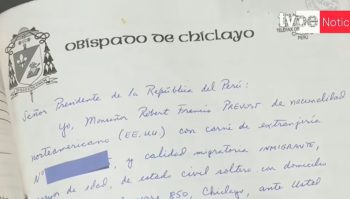 tvpe Notic
PERÚ
OBISPADO DE CHICLAYO
Señor Presidente de la República del Perú:
Yo, Monseñor Robert Francis PREVOST de nacionalidad
norteamericano (EE.UU) con carné de extranjería
Nº y calidad migratoria INMIGRANTE,
de edad, de estado civil soltero con domicilio
850, Chiclayo, ante Usted